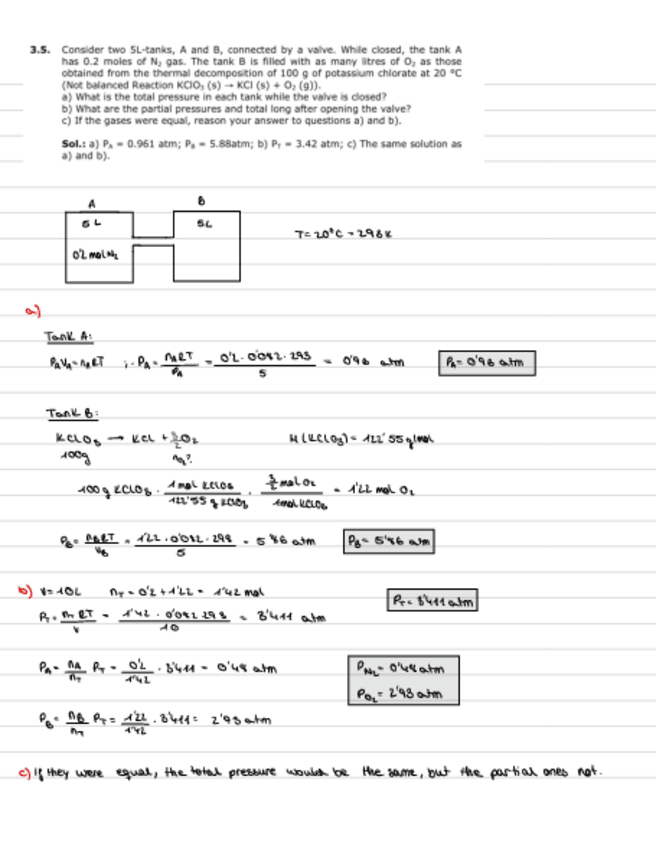 3.5. Consider two 5L-tanks, A and B, connected by a valve. While closed, the tank A
has 0.2 moles of N₂ gas. The tank B is filled with as many litres of O₂ as those
obtained from the thermal decomposition of 100 g of potassium chlorate at 20 °C
(Not balanced Reaction KClO₃ (s) → KCl (s) + O₂ (g)).
a) What is the total pressure in each tank while the valve is closed?
b) What are the partial pressures and total long after opening the valve?
c) If the gases were equal, reason your answer to questions a) and b).
Sol.: a) Pₐ = 0.961 atm; P_B = 5.88atm; b) P_T = 3.42 atm; c) The same solution as
a) and b).
A B
5L 5L
T= 20°C = 293K
0'2 mol N₂
a)
Tank A:
P_A V_A = n_A RT ; P_A = n_A RT / P_A = 0'2 · 0'082 · 293 / 5 = 0'96 atm P_A = 0'96 atm
Tank B:
KClO₃ → KCl + 3/2 O₂ M(KClO₃) = 122'55 g/mol
100g n_B?
100 g KClO₃ · 1 mol KClO₃ / 122'55 g KClO₃ · 3/2 mol O₂ / 1 mol KClO₃ = 1'22 mol O₂
P_B = n_B RT / V_B = 1'22 · 0'082 · 293 / 5 = 5'86 atm P_B = 5'86 atm
b) V = 10L n_T = 0'2 + 1'22 = 1'42 mol
P_T = 3'411 atm
P_T = n_T RT / V = 1'42 · 0'082 · 293 / 10 = 3'411 atm
P_A = n_A / n_T P_T = 0'2 / 1'42 · 3'411 = 0'48 atm P_N₂ = 0'48 atm
P_O₂ = 2'93 atm
P_B = n_B / n_T P_T = 1'22 / 1'42 · 3'411 = 2'93 atm
c) If they were equal, the total pressure would be the same, but the partial ones not.